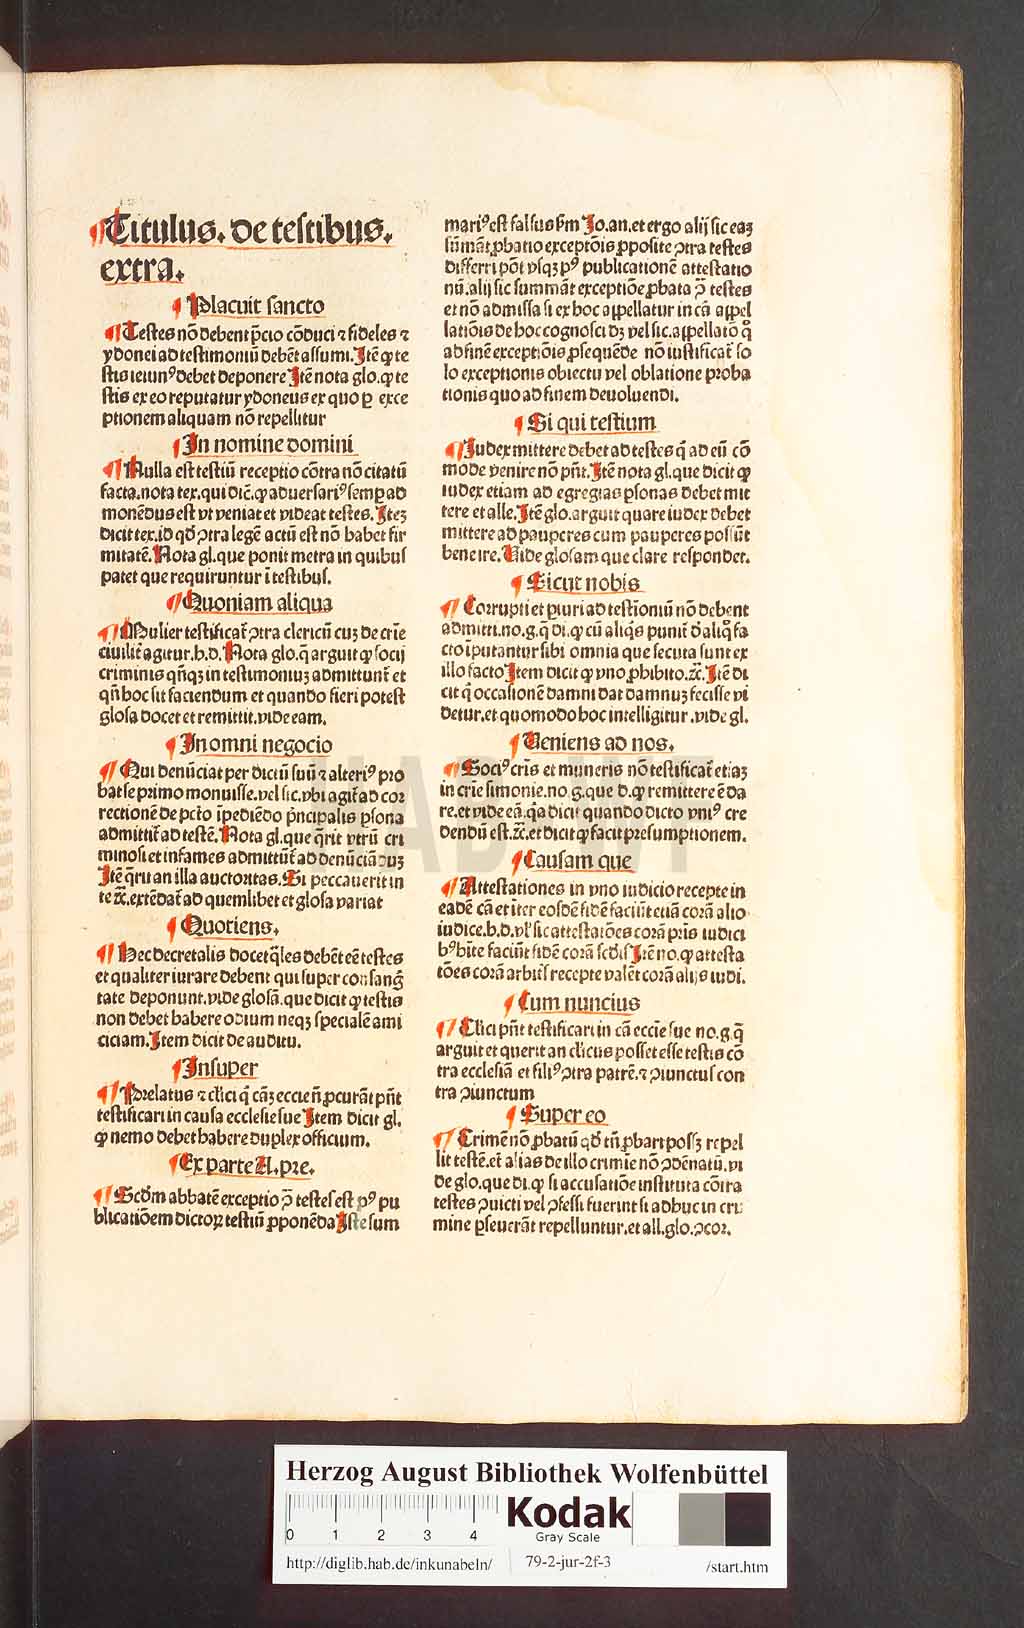 ¶Titulus. de testibus.
extra.
¶ Placuit sancto
¶Testes nō debent p̄cio cōduci ⁊ fideles ⁊
ydonei ad testimoniū debēt assumi. Itē ꝙ te
stis ieiunꝰ debet deponere Itē nota glo. ꝙ te
stis ex eo reputatur ydoneus ex quo ꝑ exce
ptionem aliquam nō repellitur
¶In nomine domini
¶Nulla est testiū receptio cōtra nō citatū
facta. nota tex. qui dic̄. ꝙ aduersariꝰ semꝑ ad
monēdus est vt veniat et videat testes. Iteꝫ
dicit tex. id qd̄ ꝯtra legē actū est nō habet fir
mitatē. Nota gl. que ponit metra in quibus
patet que requiruntur ī testibus.
¶Quoniam aliqua
¶Mulier testificat̄ ꝯtra clericū cuꝫ de crīe
ciuilit̄ agitur. h.d. Nota glo. q̄ arguit ꝙ socij
criminis qn̄qꝫ in testimoniuꝫ admittunt̄ et
qn̄ hoc sit faciendum et quando fieri potest
glosa docet et remittit. vide eam.
¶In omni negocio
¶Qui denūciat per dictū suū ⁊ alteriꝰ pro
bat se primo monuisse. vel sic. vbi agit̄ ad cor
rectionē de pctō īpediēdo p̄ncipalis ꝑsona
admittit̄ ad testē. Nota gl. que q̄rit vtrū cri
minosi et infames admittūt̄ ad denūciāduꝫ
Itē q̄rit an illa auctoritas. Si peccauerit in
te ⁊c̄. extēdat̄ ad quemlibet et glosa variat
¶Quotiens.
¶Hec decretalis docet q̄les debēt eē testes
et qualiter iurare debent qui super consanḡ
tate deponunt. vide glosā. que dicit ꝙ testis
non debet habere odium neqꝫ specialē ami
ciciam. Item dicit de auditu.
¶Insuper
¶Prelatus ⁊ cl̄ici q̄ cāꝫ eccīe n̄ ꝓcurāt pn̄t
testificari in causa ecclesie sue Item dicit gl.
ꝙ nemo debet habere duplex officium.
¶Ex parte A. pre.
¶Scd̄m abbatē exceptio ꝯ̄ testes est pꝰ pu
blicatiōem dictoꝝ testiū ꝓponēda Iste sum
mariꝰ est falsus ẜm Jo. an. et ergo alij sic eaꝫ
sūmāt ꝓbatio exceptōis ꝓposite ꝯtra testes
differri pōt vsqꝫ pꝰ publicationē attestatio
nū. alij sic summāt exceptiōe ꝓbata ꝯ̄ testes
et nō admissa si ex hoc appellatur in cā appel
latiōis de hoc cognosci dꝫ vel sic. appellatō q̄
ad finē exceptiōis ꝓsequēde nō iustificat̄ so
lo exceptionis obiectu vel oblatione proba
tionis quo ad finem deuoluendi.
¶Si qui testium
¶Iudex mittere debet ad testes q̄ ad eū cō
mode venire nō pn̄t. Itē nota gl. que dicit ꝙ
iudex etiam ad egregias ꝑsonas debet mit
tere et alle. Itē glo. arguit quare iudex debet
mittere ad pauperes cum pauperes possūt
bene ire. Vide glosam que clare respondet.
¶Sicut nobis
¶ Corrupti et ꝑiuri ad testioniū nō debent
admitti. no. g. q̄ di. ꝙ cū aliq̄s punit̄ d̄ aliq̊ fa
cto īputantur sibi omnia que secuta sunt ex
illo facto Item dicit ꝙ vno ꝓhibito. ⁊c̄. Itē di
cit q̄ occasionē damni dat damnuꝫ fecisse vi
detur. et quomodo hoc intelligitur. vide gl.
¶Veniens ad nos.
¶Sociꝰ cr̄is et muneris nō testificat̄ etiaꝫ
in crīe simonie. no. g. que d. ꝙ remittere ē da
re. et vide eā. q̄a dicit quando dicto vniꝰ cre
dendū est. ⁊c̄. et dicit ꝙ facit presumptionem.
¶Causam que
¶Attestationes in vno iudicio recepte in
eadē cā et iter̄ eosdē fidē faciūt etiā corā alio
iudice. h.d. vl̓ sic attestatiōes corā pris iudici
bꝰ hīte faciūt fidē corā scd̄is Itē no. ꝙ attesta
tōes corā arbitris recepte valēt corā alijs iudi.
¶Cum nuncius
¶Cl̄ici pn̄t testificari in cā eccīe sue no. g. q̄
arguit et querit an cl̄icus posset esse testis cō
tra ecclesiā et filiꝰ ꝯtra patrē. ⁊ ꝯiunctus con
tra ꝯiunctum
¶Super eo
¶Crimē nō ꝓbatū qd̄ tn̄ ꝓbari possꝫ repel
lit testē. et alias de illo crimīe nō ꝯdēnatū. vi
de glo. que di. ꝙ si accusatiōe instituta cōtra
testes ꝯuicti vel ꝯfessi fuerint si adhuc in cri
mine ꝑseuerāt repelluntur. et all. glo. ꝯcor.
HAB WF
Herzog August Bibliothek Wolfenbüttel
0 1 2 3 4
Kodak
Gray Scale
http://diglib.hab.de/inkunabeln/ 79-2-jur-2f-3 /start.htm